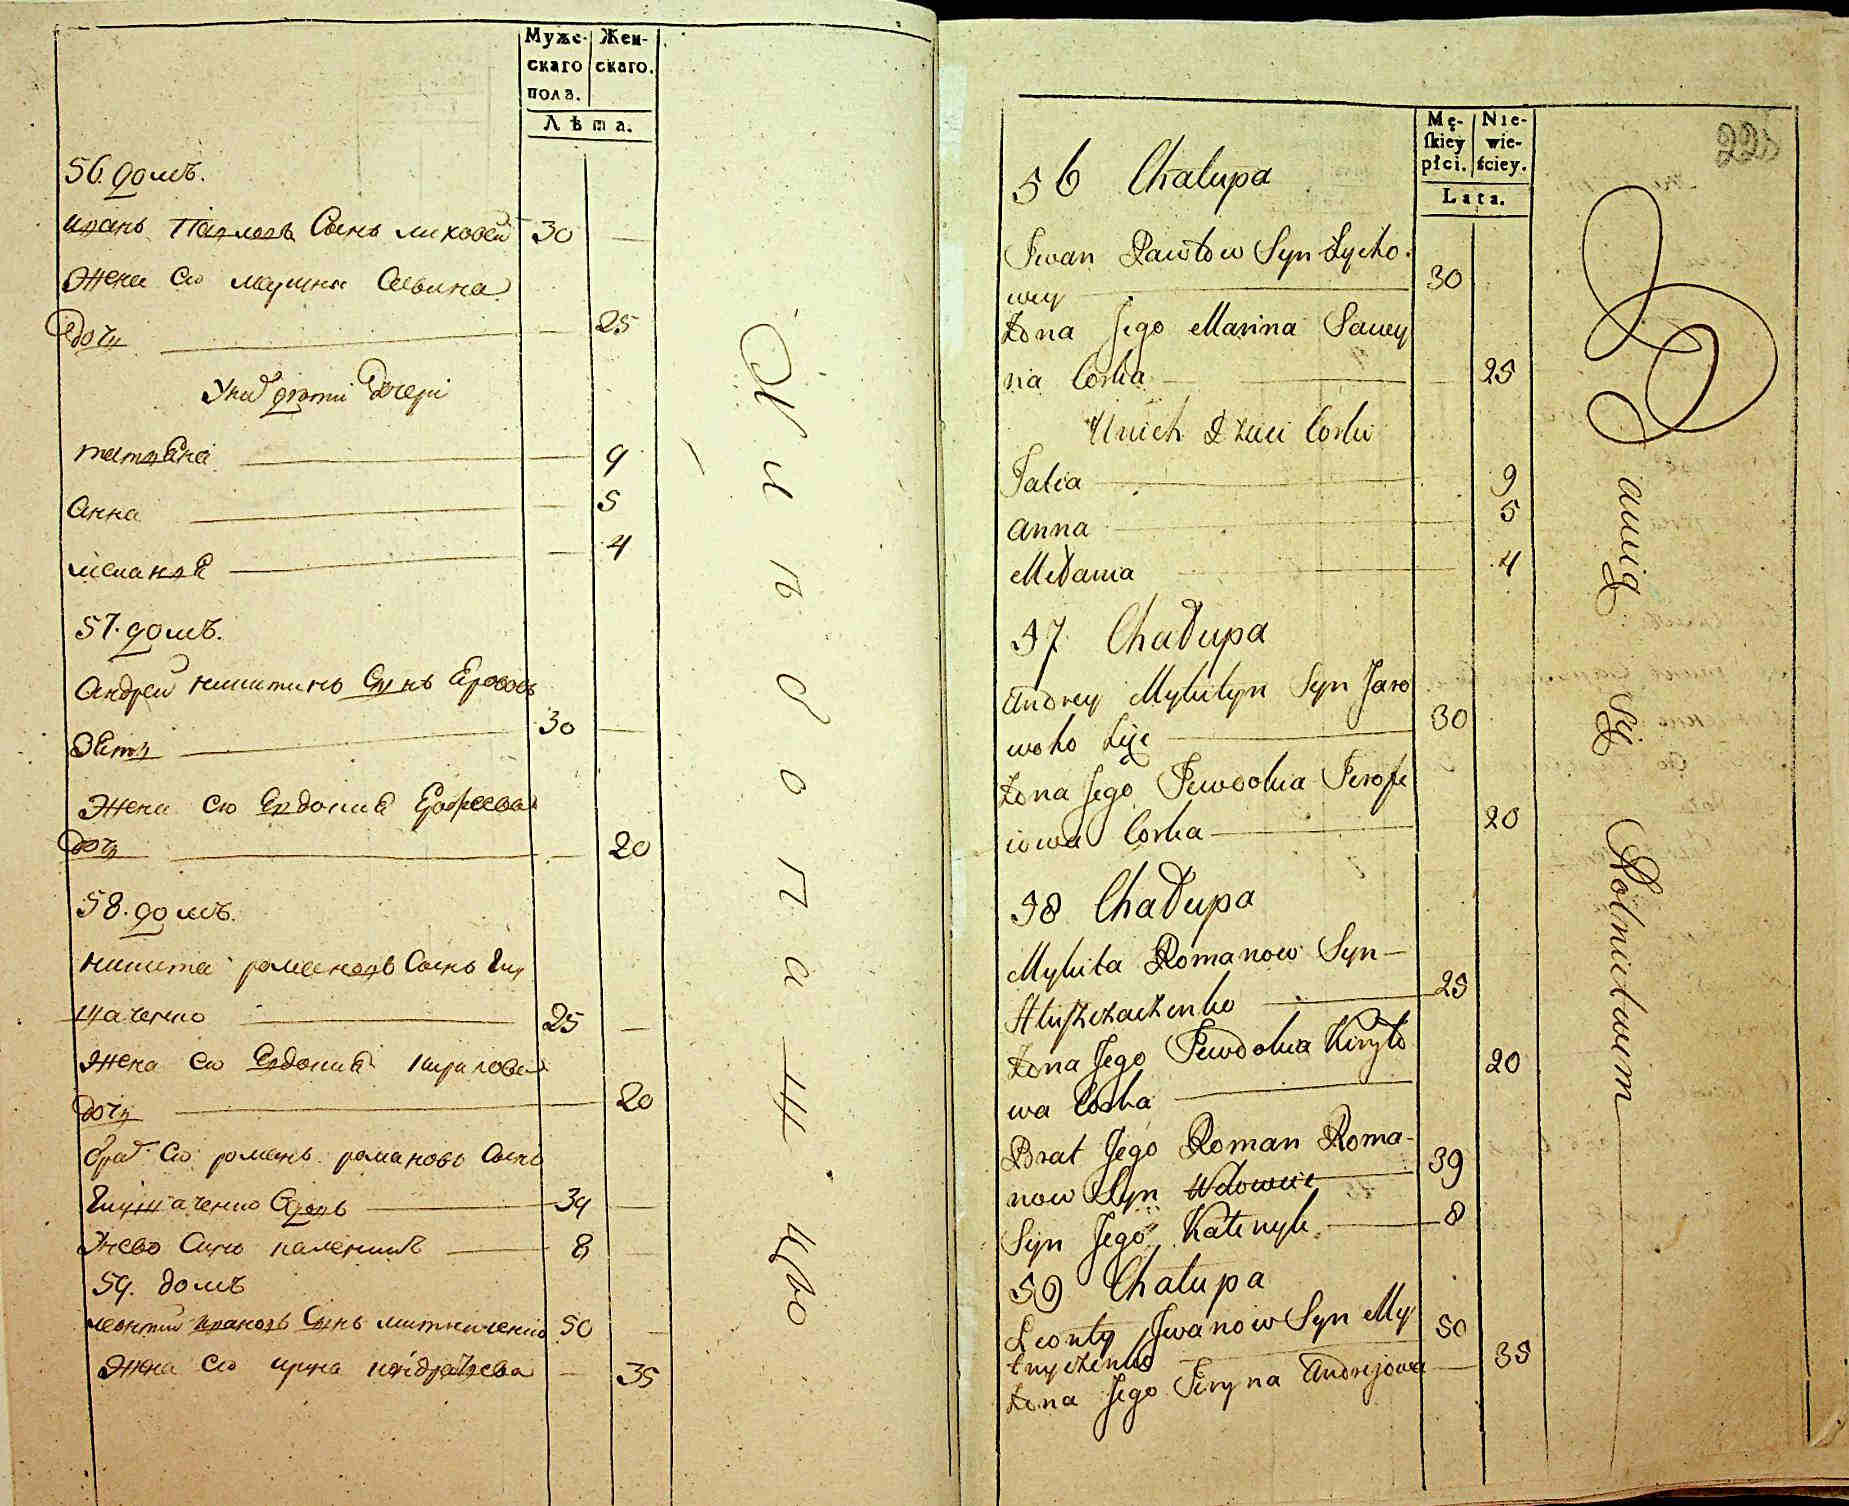 Муже- Жен-
скаго скаго.
полъ.
Лѣта.
56. домъ.
Иванъ Павловъ Сынъ Лиховей 30 —
Жена Ево Марина Савина
дочь — 25
У них дети дочери
татияна — 9
Анна — 5
Меланія — 4
57. домъ.
Андрей Никитинъ Сынъ Ерового
Зять 30 —
Жена Ево Евдокия Ерофеева
дочь — 20
58. домъ.
Никита романовъ Сынъ Глу
щаченко 25 —
Жена Ево Евдокия Кирилова
дочь — 20
брат Ево романъ романовъ Сынъ
Глущаченко вдовъ 39 —
У нево Сынъ каленикъ 8 —
59. домъ
леонтий Ивановъ Сынъ митниченко 50 —
Жена Ево ирина — 35
Хлебопашцво
Mę- Nie-
skiey wie-
płci. ściey.
Lata.
223
56 Chalupa
Jwan Pawłow Syn Łycho-
wey 30
Żona Jego Marina Sawy
na Corka 25
U nich Dzieci Corki
Tatia 9
Anna 5
Mełania 4
57 Chałupa
Andrey Mykityn Syn Jaro
woho Zięć 30
Żona Jego Jewdokia Jerofe
iowa Corka 20
58 Chałupa
Mykita Romanow Syn —
Hłuszczaczenko 25
Żona Jego Jewdokia Kiryło
wa Corka 20
Brat Jego Roman Roma-
now Syn Wdowiec 39
Syn Jego Kalenyk 8
59 Chalupa
Leonty Jwanow Syn My
tnyczenko 50
Żona Jego Jryna Andrejowa 35
Bawią Się Rolnictwem